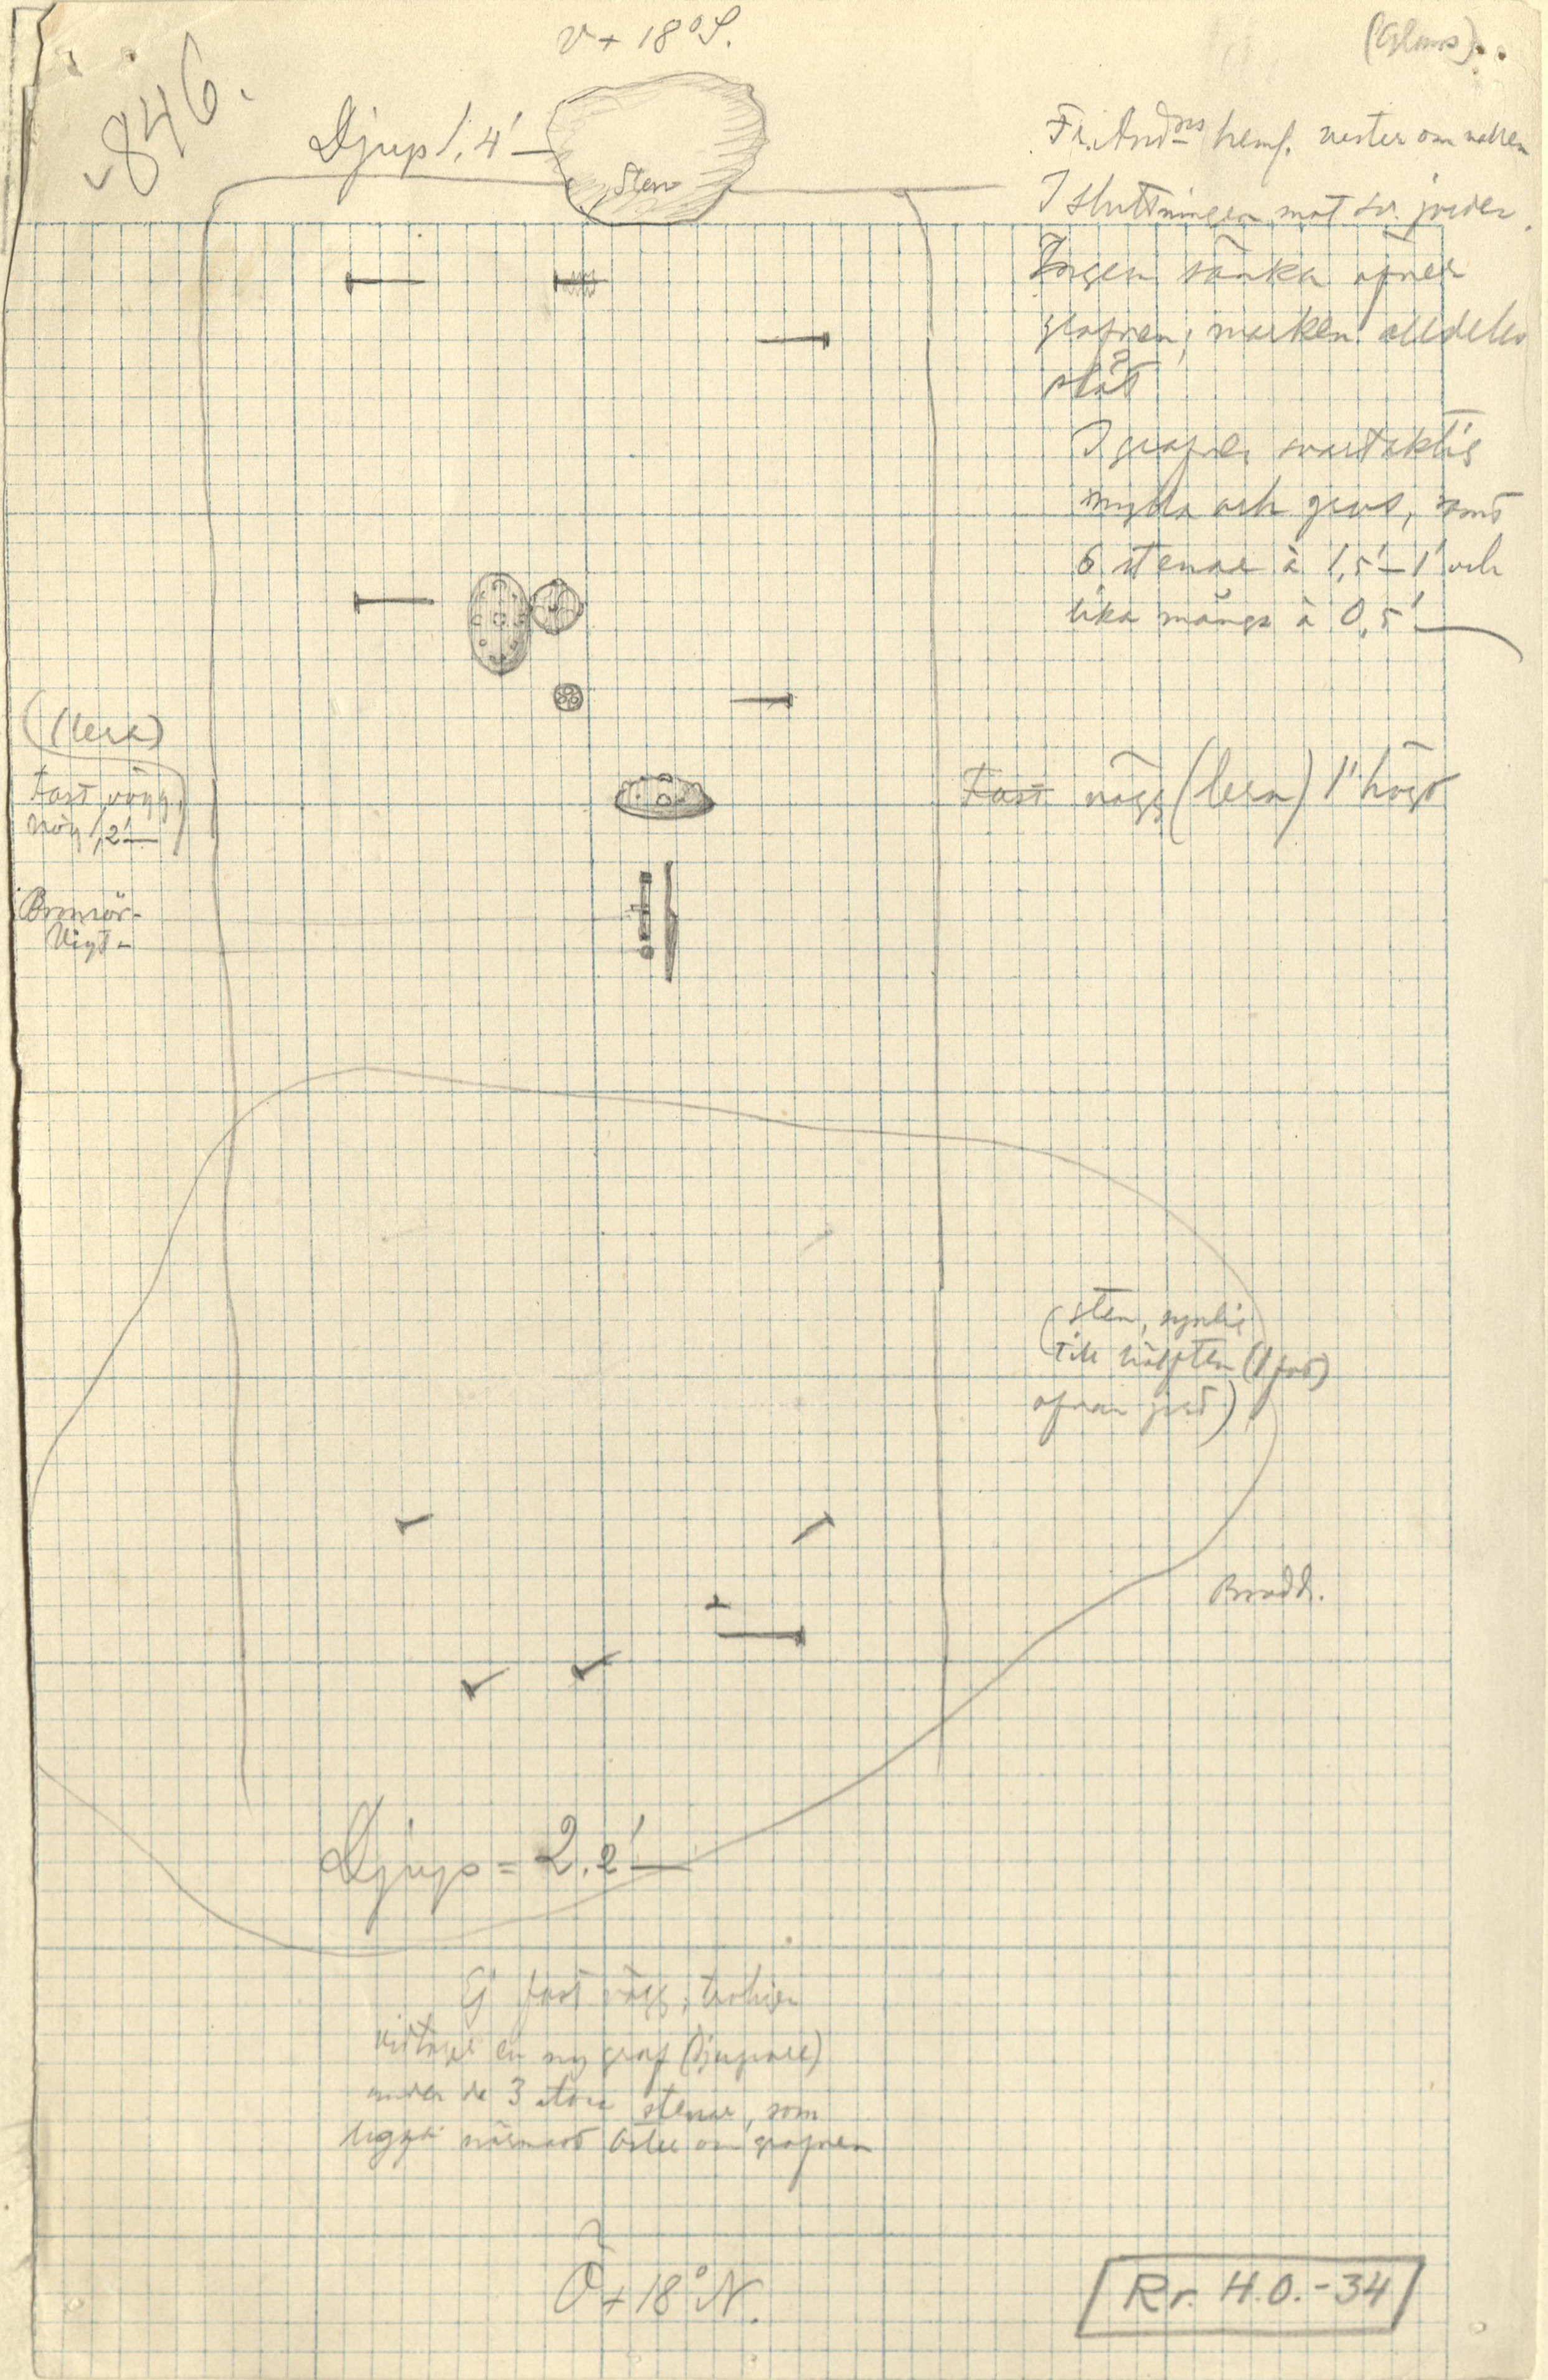 V + 18° S.
846.
Djup 1,4'
Sten
Fr. And:ns heml. vester om vallen
I sluttningen mot sv. jorden
Ingen sänka ofver
grafven; marken alldeles
slät
I grafven svartaktig
mylla och grus, samt
6 stenar à 1,5'–1' och
lika många à 0,5'
(lera)
Fast vägg,
hög 1,2'
Fast vägg (lera) 1' hög
Bronsör-
Vigt-
(sten, synlig
till hälften (1 fot)
ofvan jord)
Bradd.
Djup = 2.2'
Ej fast vägg; troligen
vidtager en ny graf (djupare)
under de 3 stora stenar, som
ligga närmast öster om grafven
Ö + 18° N.
Rr. H.O.-34